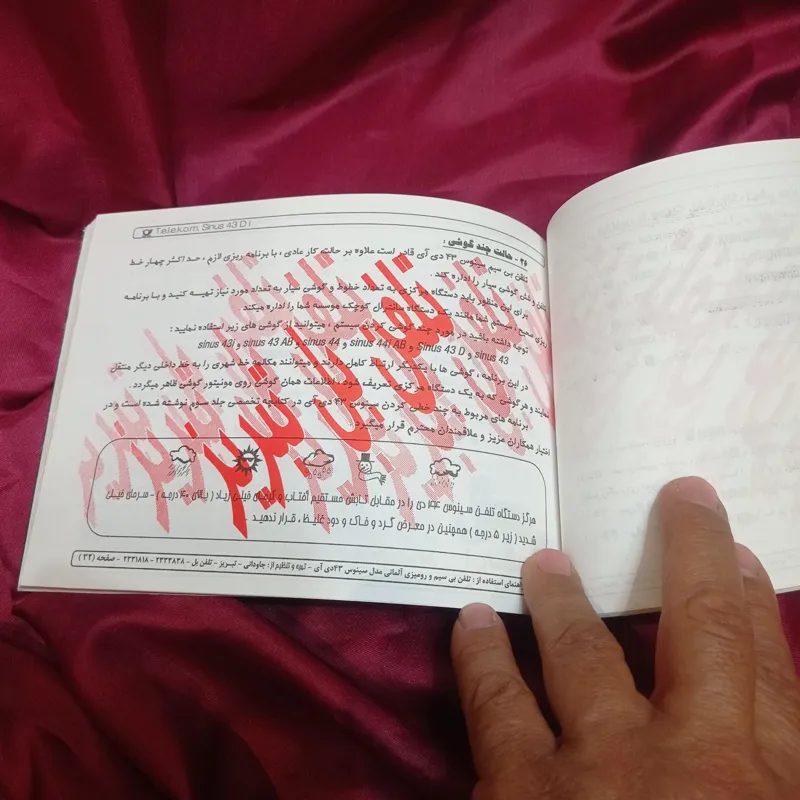 Telekom, Sinus 43 D i
۲۶ - حالت چند گوشی :
تلفن بی سیم سینوس ۴۳ دی آی قادر است علاوه بر حالت کار عادی ، با برنامه ریزی لازم ، حد اکثر چهار خط
تلفن و شش گوشی سیار را اداره کند .
برای این منظور باید دستگاه مرکزی به تعداد خطوط و گوشی سیار به تعداد مورد نیاز تهیه کنید و با برنامه
ریزی صحیح ، سیستم شما مانند یک دستگاه سانترال کوچک موسسه شما را اداره میکند .
توجه داشته باشید در مورد چند گوشی کردن سیستم ، میتوانید از گوشی های زیر استفاده نمایید :
sinus 43 و Sinus 43 D و sinus 44i AB و sinus 44 و sinus 43 AB و sinus 43i
در این برنامه ، گوشی ها با یکدیگر ارتباط کامل دارند و میتوانند مکالمه خط شهری را به خط داخلی دیگر منتقل
نمایند و هر گوشی که به یک دستگاه مرکزی تعریف شود ، اطلاعات همان گوشی روی مونیتور گوشی ظاهر میگردد .
برنامه های مربوط به چند خطی کردن سینوس ۴۳ دی آی در کتابچه تخصصی جلد سوم نوشته شده است و در
اختیار همکاران عزیز و علاقمندان محترم قرار میگیرد
تلفن بل تبریز
هرگز دستگاه تلفن سینوس ۴۳ دی را در مقابل تابش مستقیم آفتاب و گرمای خیلی زیاد ( بالای ۴۰ درجه ) - سرمای خیلی
شدید ( زیر ۵ درجه ) همچنین در معرض گرد و خاک و دود غلیظ ، قرار ندهید .
راهنمای استفاده از : تلفن بی سیم و رومیزی آلمانی مدل سینوس ۴۳دی آی - تهیه و تنظیم از: جاودانی - تبریز - تلفن بل - ۲۳۳۳۸۳۸ - ۲۳۳۱۸۱۸ - صفحه ( ۳۴ )